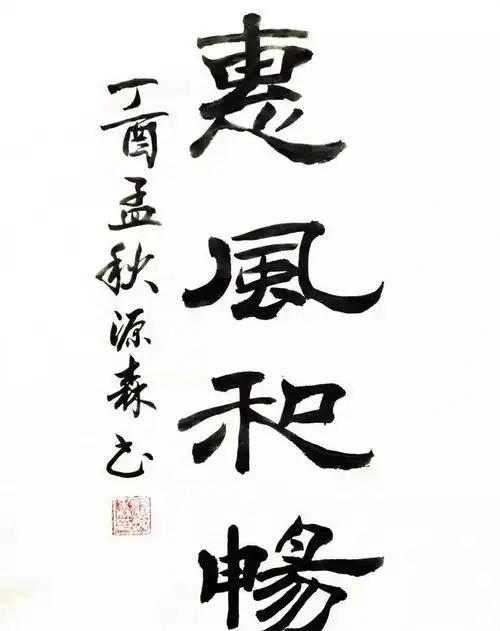 惠風和暢
丁酉孟秋源森书